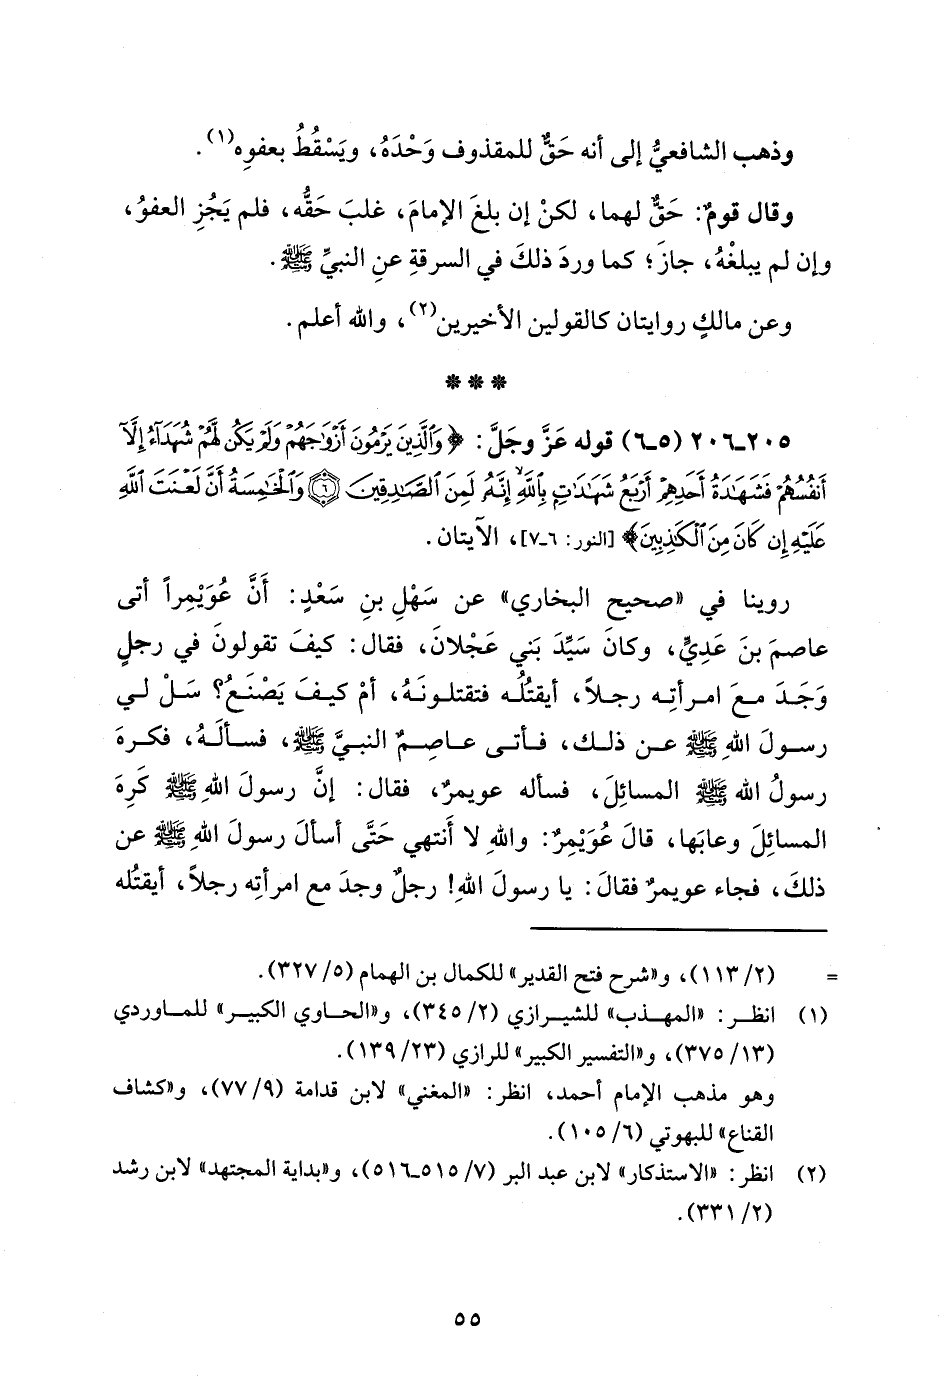 وذهب الشافعيُّ إلى أنه حَقٌّ للمقذوف وَحْدَهُ، ويَسْقُطُ بعفوِه(١).
وقال قومٌ: حَقٌّ لهما، لكنْ إن بلغَ الإمامَ، غلبَ حَقُّه، فلم يَجُزِ العفوُ،
وإن لم يبلغْهُ، جازَ؛ كما وردَ ذلكَ في السرقةِ عنِ النبيِّ ﷺ.
وعن مالكٍ روايتان كالقولين الأخيرين(٢)، والله أعلم.
***
٢٠٥ـ٢٠٦ (٥ـ٦) قوله عَزَّ وجَلَّ: ﴿وَٱلَّذِينَ يَرْمُونَ أَزْوَٰجَهُمْ وَلَمْ يَكُن لَّهُمْ شُهَدَآءُ إِلَّآ
أَنفُسُهُمْ فَشَهَٰدَةُ أَحَدِهِمْ أَرْبَعُ شَهَٰدَٰتٍۭ بِٱللَّهِ ۙ إِنَّهُۥ لَمِنَ ٱلصَّٰدِقِينَ ۝٦ وَٱلْخَٰمِسَةُ أَنَّ لَعْنَتَ ٱللَّهِ
عَلَيْهِ إِن كَانَ مِنَ ٱلْكَٰذِبِينَ﴾ [النور: ٦ـ٧]، الآيتان.
روينا في «صحيح البخاري» عن سَهْلِ بنِ سَعْدٍ: أَنَّ عُوَيْمِراً أتى
عاصمَ بنَ عَدِيٍّ، وكانَ سَيِّدَ بَني عَجْلانَ، فقال: كيفَ تقولونَ في رجلٍ
وَجَدَ معَ امرأتِه رجلاً، أيقتُلُه فتقتلونَهُ، أمْ كيفَ يَصْنَعُ؟ سَلْ لي
رسولَ اللهِ ﷺ عن ذلك، فأتى عاصمٌ النبيَّ ﷺ، فسألَهُ، فكرهَ
رسولُ الله ﷺ المسائِلَ، فسأله عويمرٌ، فقال: إنَّ رسولَ اللهِ ﷺ كَرِهَ
المسائِلَ وعابَها، قالَ عُوَيْمِرٌ: واللهِ لا أَنتهي حَتَّى أسألَ رسولَ اللهِ ﷺ عن
ذلكَ، فجاء عويمرٌ فقالَ: يا رسولَ اللهِ! رجلٌ وجدَ مع امرأتِه رجلاً، أيقتُله
= (٢/ ١١٣)، و«شرح فتح القدير» للكمال بن الهمام (٥/ ٣٢٧).
(١) انظر: «المهذب» للشيرازي (٢/ ٣٤٥)، و«الحاوي الكبير» للماوردي
(١٣/ ٣٧٥)، و«التفسير الكبير» للرازي (٢٣/ ١٣٩).
وهو مذهب الإمام أحمد، انظر: «المغني» لابن قدامة (٩/ ٧٧)، و«كشاف
القناع» للبهوتي (٦/ ١٠٥).
(٢) انظر: «الاستذكار» لابن عبد البر (٧/ ٥١٥ـ٥١٦)، و«بداية المجتهد» لابن رشد
(٢/ ٣٣١).
٥٥